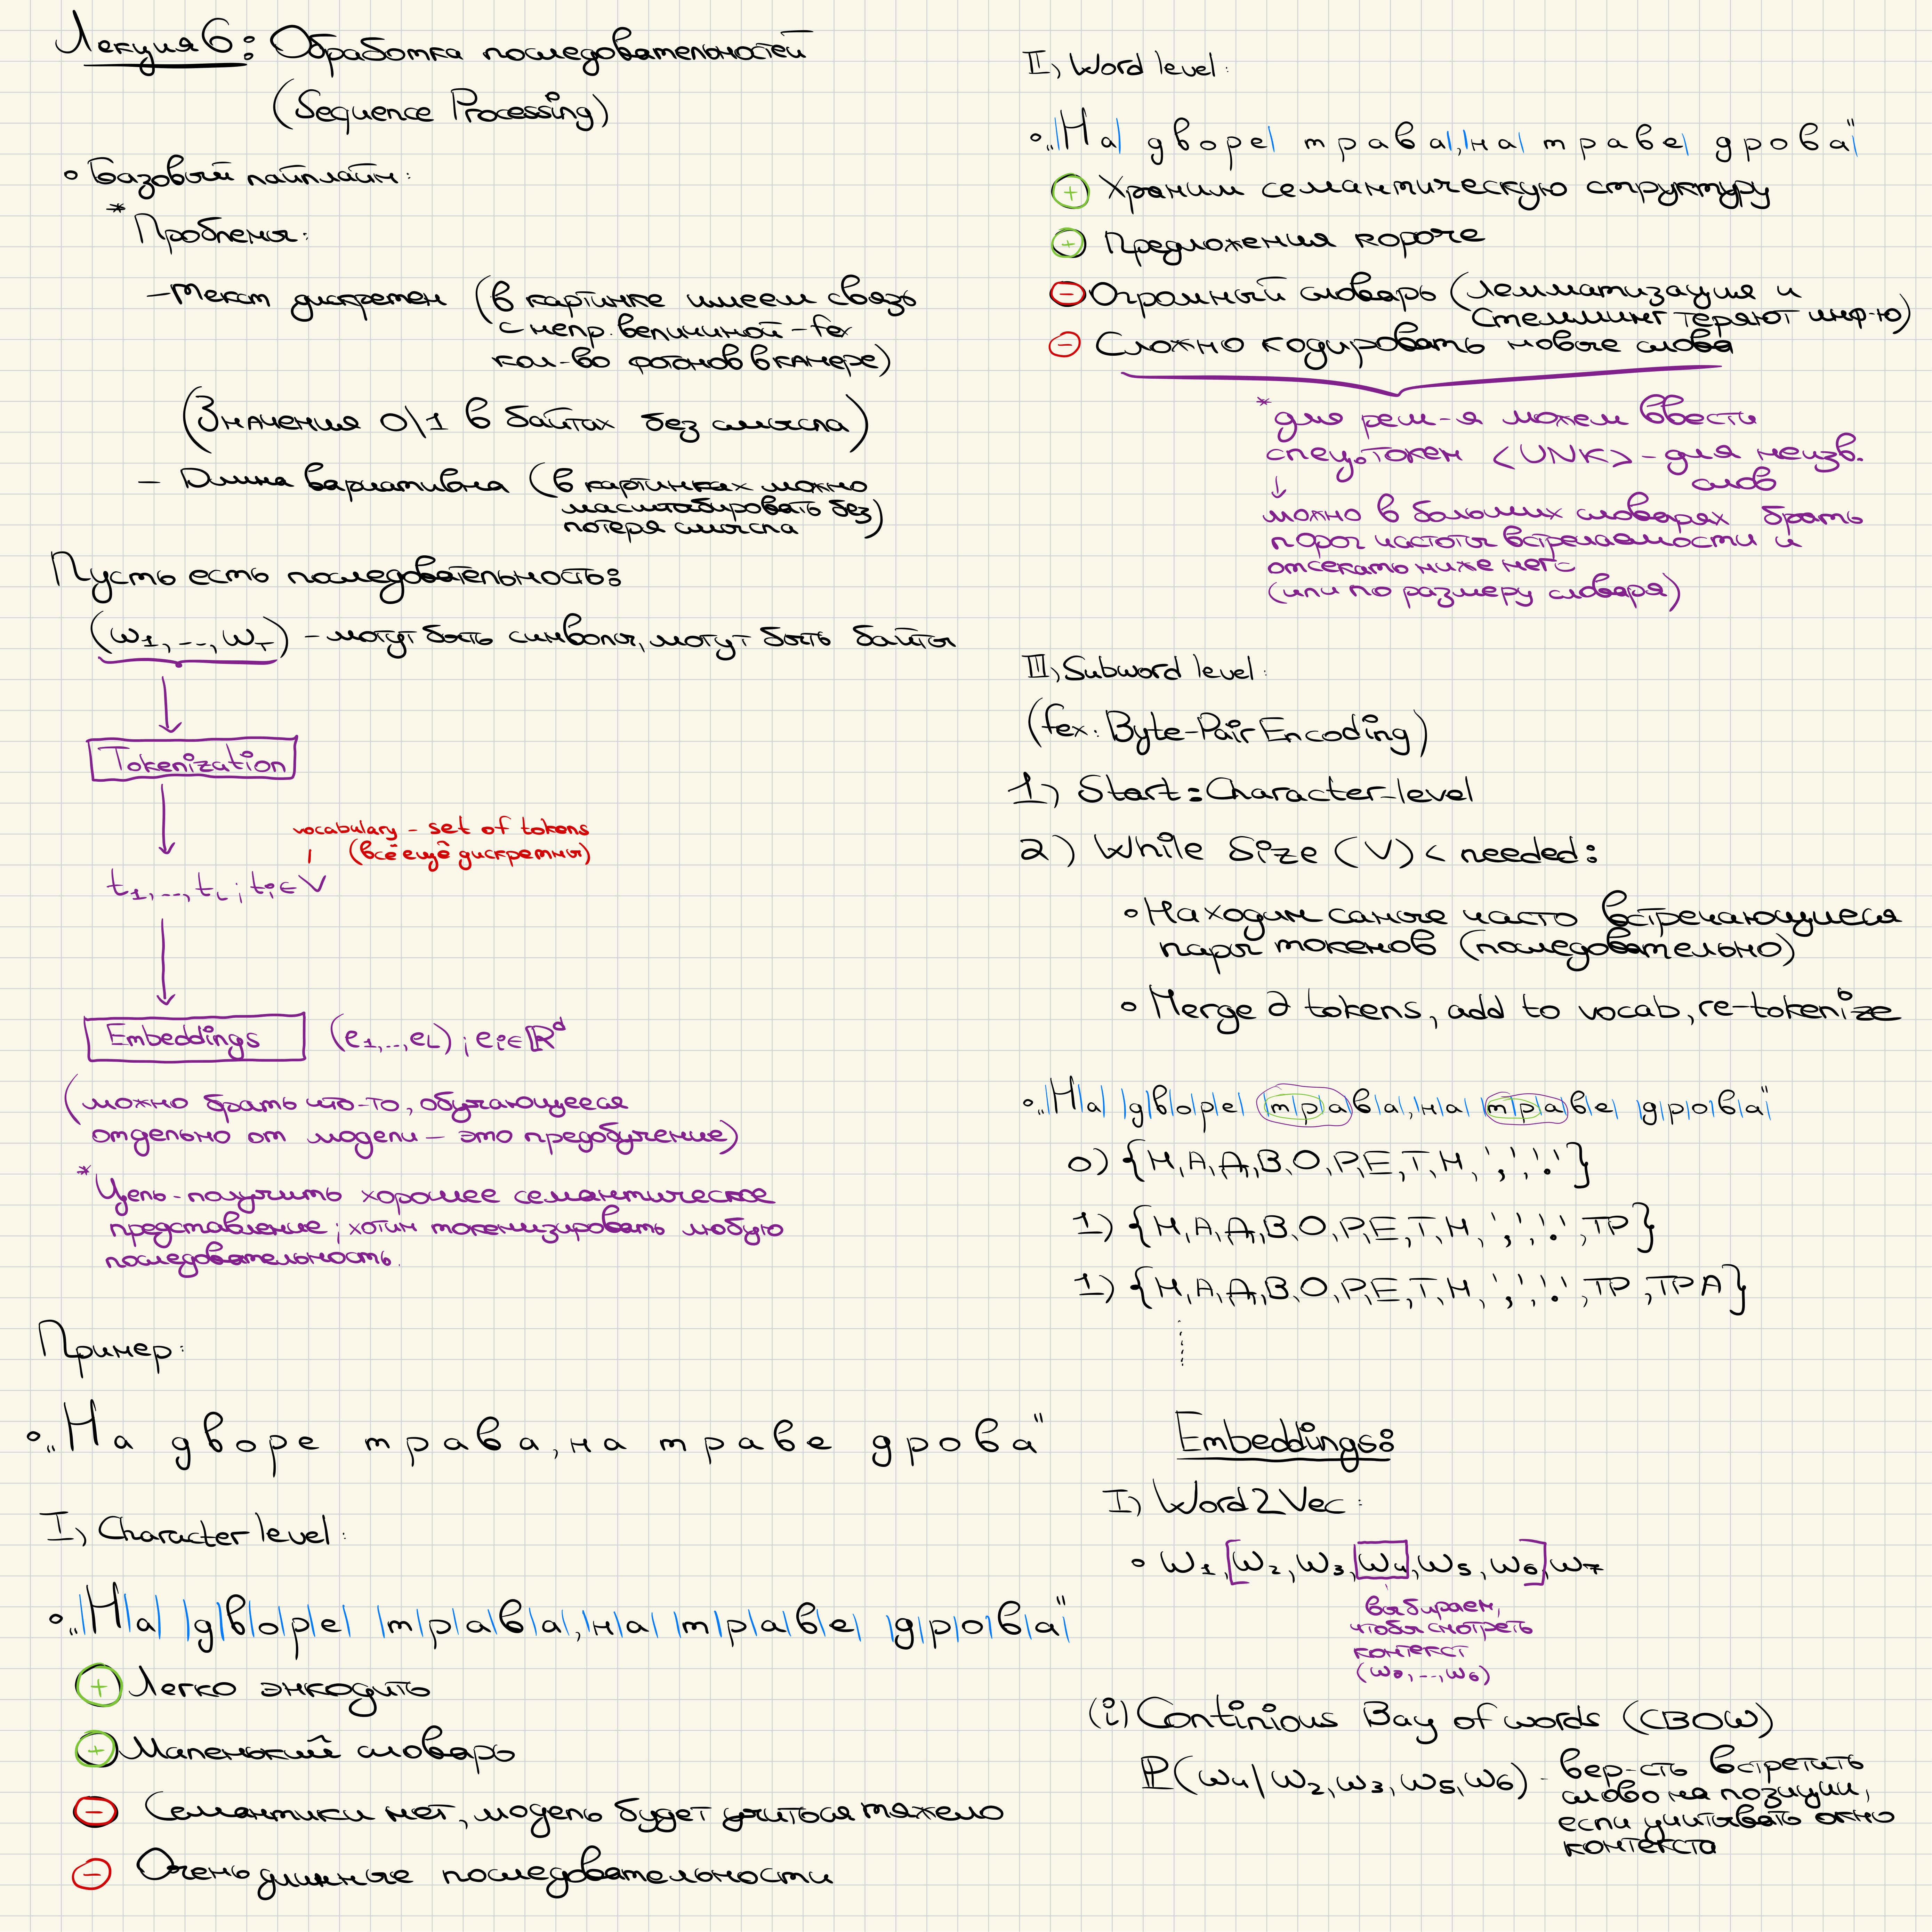 Лекция 6: Обработка последовательностей
(Sequence Processing)
• Базовый пайплайн:
* Проблемы:
- Текст дискретен (в картинке имеем связь
с непр. величиной - fex
кол-во фотонов в камере)
(Значения 0\1 в байтах без смысла)
- Длина вариативна (в картинках можно
масштабировать без
потеря смысла)
Пусть есть последовательность:
(ω₁, ..., ω_T) - могут быть символы, могут быть байты
Tokenization
vocabulary - set of tokens
(всё ещё дискретны)
t₁, ..., t_L ; tᵢ ∈ V
Embeddings (e₁, .., e_L) ; eᵢ ∈ ℝᵈ
(можно брать что-то, обучающееся
отдельно от модели - это предобучение)
* Цель - получить хорошее семантическое
представление; хотим токенизировать любую
последовательность.
Пример:
• „На дворе трава, на траве дрова"
I) Character level:
• „|Н|а| |д|в|о|р|е| |т|р|а|в|а|,|н|а| |т|р|а|в|е| |д|р|о|в|а|"
+ Легко энкодить
+ Маленький словарь
- Семантики нет, модель будет учиться тяжело
- Очень длинные последовательности
II) Word level:
• „|На| дворе| трава|,|на| траве| дрова|"
+ Храним семантическую структуру
+ Предложения короче
- Огромный словарь (лемматизация и
стемминг теряют инф-ю)
- Сложно кодировать новые слова
* для реш-я можем ввести
спец.токен <UNK> - для неизв.
слов
↓
можно в больших словарях брать
порог частоты встречаемости и
отсекать ниже него
(или по размеру словаря)
III) Subword level:
(fex: Byte-Pair Encoding)
1) Start: Character-level
2) While Size (V) < needed:
• Находим самые часто встречающиеся
пары токенов (последовательно)
• Merge 2 tokens, add to vocab, re-tokenize
• „|Н|а| |д|в|о|р|е| |т|р|а|в|а|,|н|а| |т|р|а|в|е| |д|р|о|в|а|"
0) {Н, А, Д, В, О, Р, Е, Т, Н, ',', '.'}
1) {Н, А, Д, В, О, Р, Е, Т, Н, ',', '.', ТР}
1) {Н, А, Д, В, О, Р, Е, Т, Н, ',', '.', ТР, ТРА}
Embeddings:
I) Word2Vec:
• ω₁, [ω₂, ω₃, [ω₄], ω₅, ω₆], ω₇
выбираем,
чтобы смотреть
контекст
(ω₂, ..., ω₆)
(i) Continious Bag of words (CBOW)
ℙ(ω₄ | ω₂, ω₃, ω₅, ω₆) - вер-сть встретить
слово на позиции,
если учитывать окно
контекста